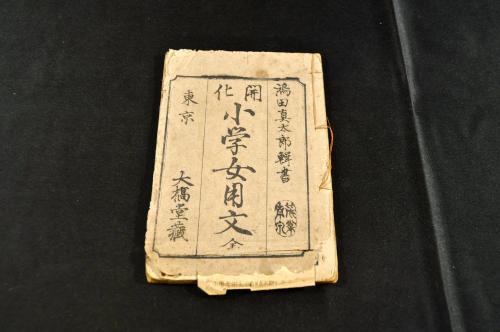 鴻田真太郎輯書
開化
小学女用文全
東京
大橋堂藏